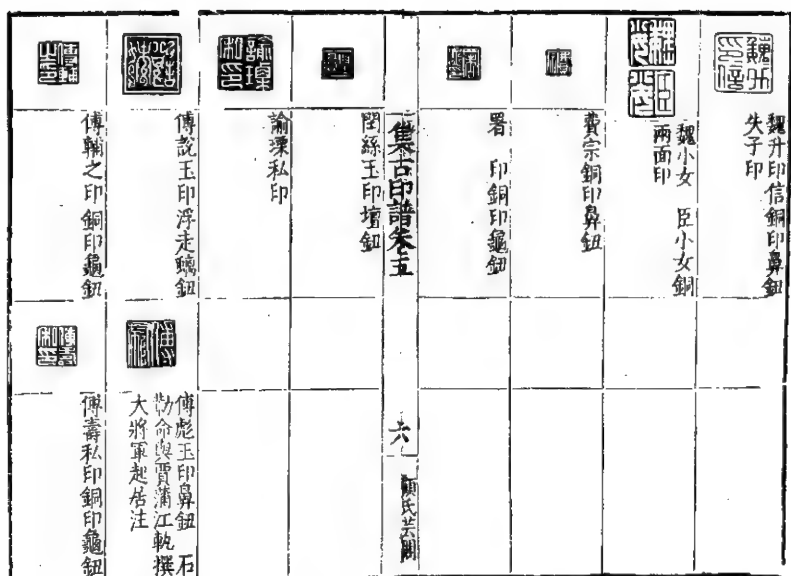 魏升印信銅印鼻鈕
失子印
魏小女　臣小女銅
兩面印
費宗銅印鼻鈕
署　印銅印龜鈕
集古印譜卷五
六
顧氏芸閣
閏綠玉印壇鈕
諭璪私印
傅說玉印浮走螭鈕
傅彪玉印鼻鈕　石
勒命與賈蒲江軌撰
大將軍起居注
傅輔之印銅印龜鈕
傅壽私印銅印龜鈕